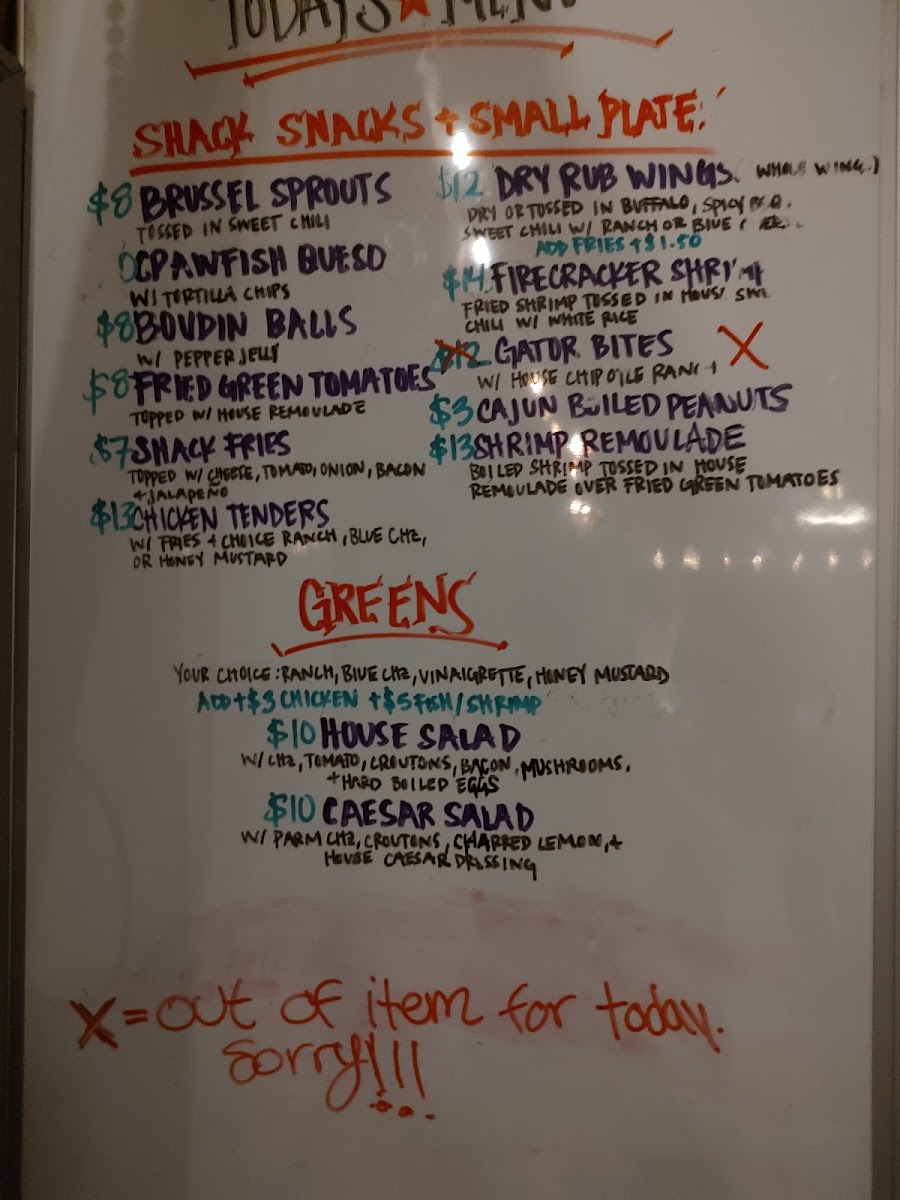 TODAYS ★ MENU
SHACK SNACKS + SMALL PLATE
$8 BRUSSEL SPROUTS
TOSSED IN SWEET CHILI
CRAWFISH QUESO
W/ TORTILLA CHIPS
$8 BOUDIN BALLS
W/ PEPPER JELLY
$8 FRIED GREEN TOMATOES
TOPPED W/ HOUSE REMOULADE
$7 SHACK FRIES
TOPPED W/ CHEESE, TOMATO, ONION, BACON
+ JALAPEÑO
$13 CHICKEN TENDERS
W/ FRIES + CHOICE RANCH, BLUE CHZ,
OR HONEY MUSTARD
$12 DRY RUB WINGS (WHOLE WING)
DRY OR TOSSED IN BUFFALO, SPICY
SWEET CHILI W/ RANCH OR BLUE
ADD FRIES +$1.50
$14 FIRECRACKER SHRIMP
FRIED SHRIMP TOSSED IN HOUSE
CHILI W/ WHITE RICE
$12 GATOR BITES X
W/ HOUSE CHIPOTLE RANCH
$3 CAJUN BOILED PEANUTS
$13 SHRIMP REMOULADE
BOILED SHRIMP TOSSED IN HOUSE
REMOULADE OVER FRIED GREEN TOMATOES
GREENS
YOUR CHOICE: RANCH, BLUE CHZ, VINAIGRETTE, HONEY MUSTARD
ADD +$3 CHICKEN +$5 FISH/SHRIMP
$10 HOUSE SALAD
W/ CHZ, TOMATO, CROUTONS, BACON, MUSHROOMS,
+ HARD BOILED EGGS
$10 CAESAR SALAD
W/ PARM CHZ, CROUTONS, CHARRED LEMON, +
HOUSE CAESAR DRESSING
X = out of item for today.
Sorry!!!